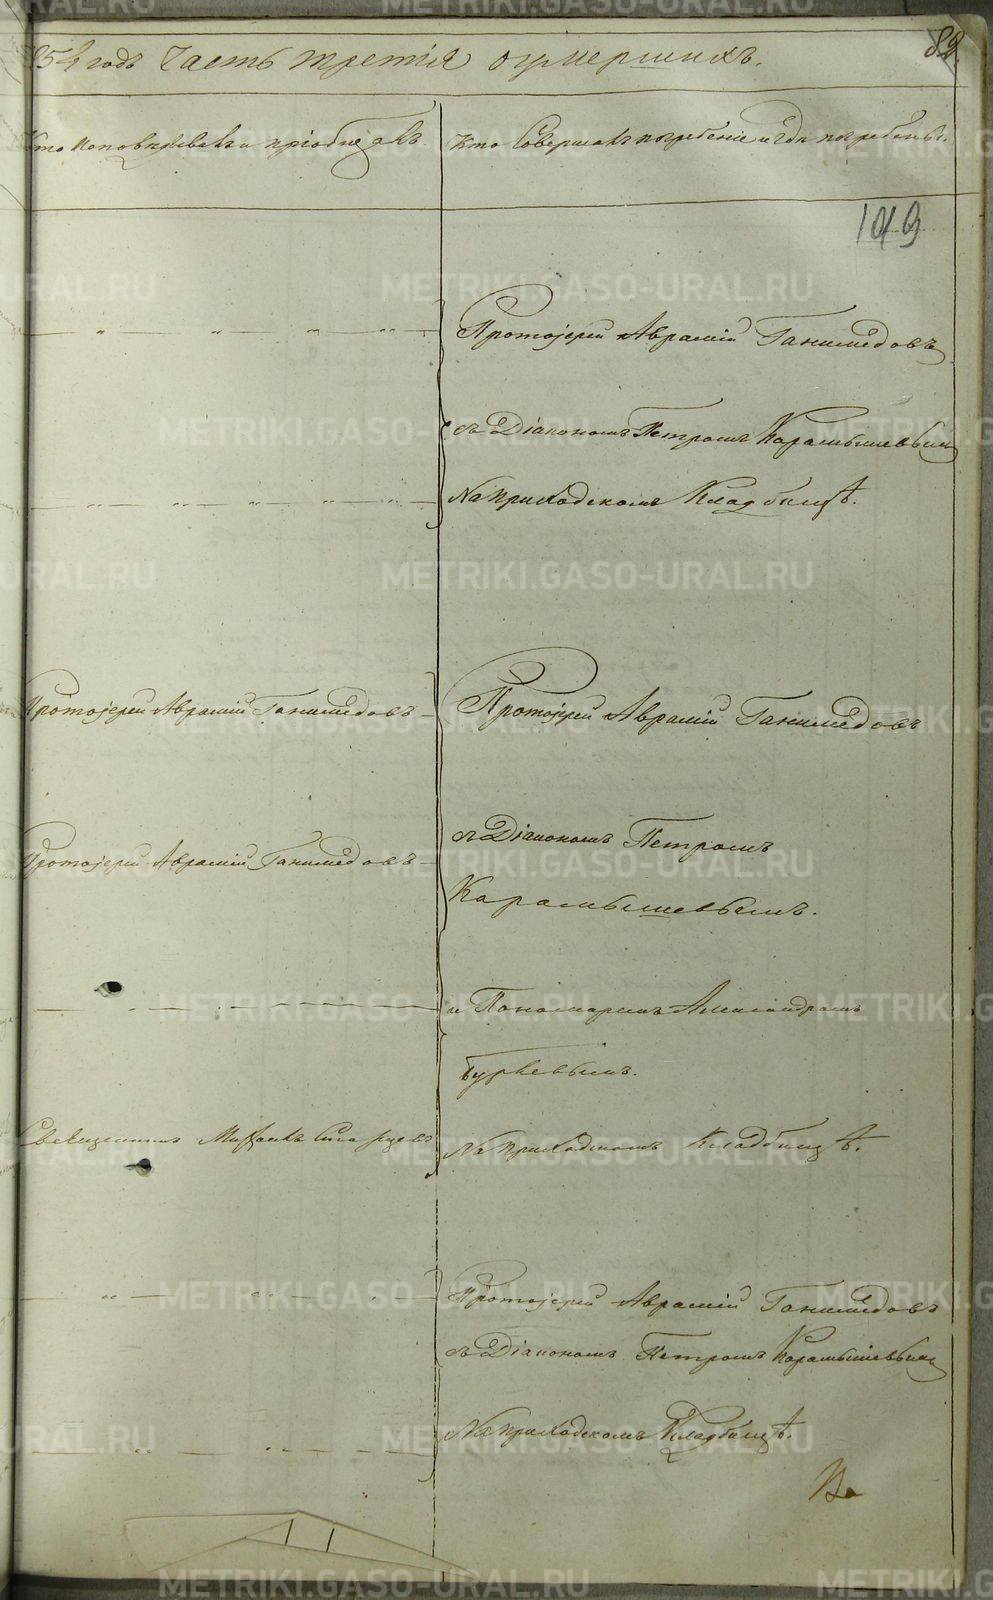 854 годъ Часть третія о умершихъ.
82.
Кто исповѣдывалъ и пріобщалъ.
Кто совершалъ погребеніе и гдѣ погребены.
103
Протоіерей Аврамій Ганимедовъ
съ Діакономъ Петромъ Карамышевымъ
На приходскомъ Кладбищѣ.
Протоіерей Аврамій Ганимедовъ
Протоіерей Аврамій Ганимедовъ
съ Діакономъ Петромъ
Протоіерей Аврамій Ганимедовъ
Карамышевымъ.
и Пономаремъ Александромъ
Священникъ Михаилъ
На приходскомъ Кладбищѣ.
Протоіерей Аврамій Ганимедовъ
съ Діакономъ Петромъ Карамышевымъ
На приходскомъ Кладбищѣ.
METRIKI.GASO-URAL.RU